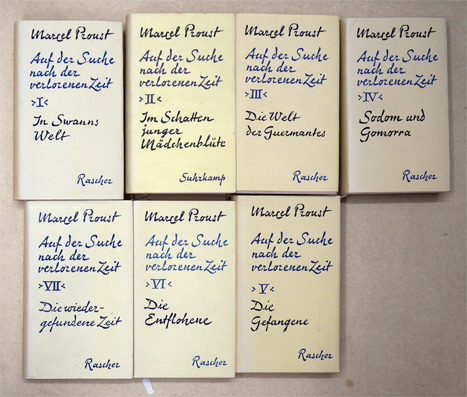 Marcel Proust
Auf der Suche
nach der
verlorenen Zeit
›I‹
In Swanns
Welt
Rascher
Marcel Proust
Auf der Suche
nach der
verlorenen Zeit
›II‹
Im Schatten
junger
Mädchenblüte
Suhrkamp
Marcel Proust
Auf der Suche
nach der
verlorenen Zeit
›III‹
Die Welt
der Guermantes
Rascher
Marcel Proust
Auf der Suche
nach der
verlorenen Zeit
›IV‹
Sodom und
Gomorra
Rascher
Marcel Proust
Auf der Suche
nach der
verlorenen Zeit
›VII‹
Die wieder-
gefundene Zeit
Rascher
Marcel Proust
Auf der Suche
nach der
verlorenen Zeit
›VI‹
Die
Entflohene
Rascher
Marcel Proust
Auf der Suche
nach der
verlorenen Zeit
›V‹
Die
Gefangene
Rascher